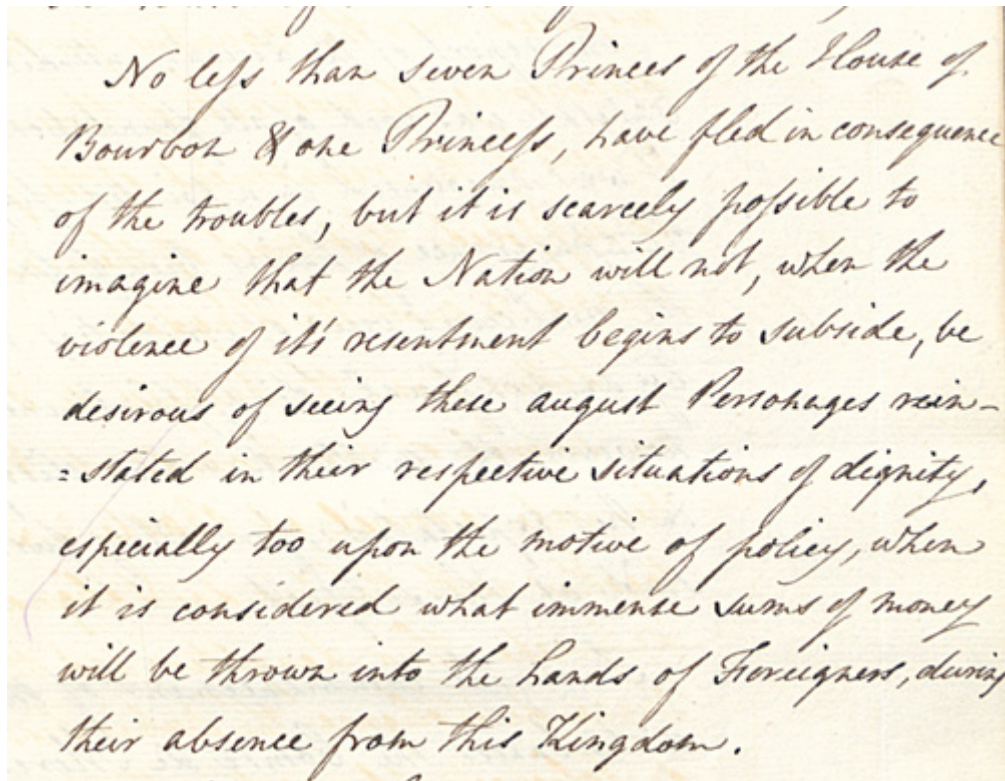 No leſs than seven Princes of the House of
Bourbon & one Princeſs, have fled in consequence
of the troubles, but it is scarcely poſsible to
imagine that the Nation will not, when the
violence of it's resentment begins to subside, be
desirous of seeing these august Personages rein-
=stated in their respective situations of dignity,
especially too upon the motive of policy, when
it is considered what immense sums of money
will be thrown into the hands of Foreigners, during
their absence from this Kingdom.